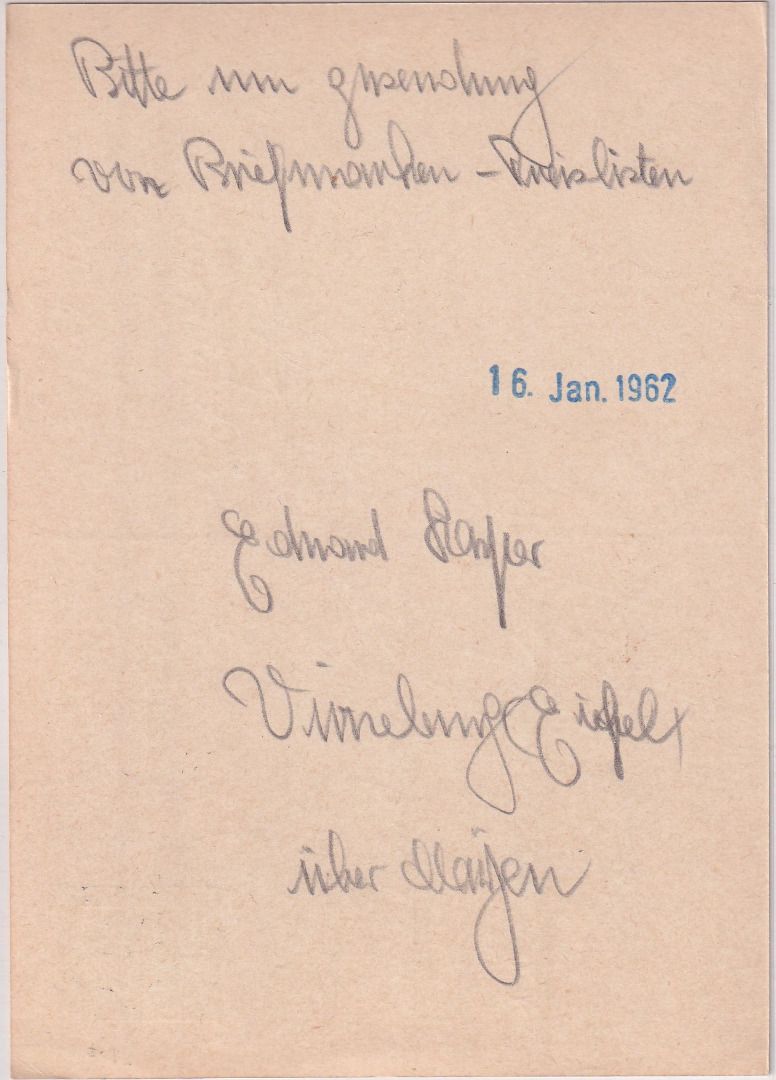 Bitte um zusendung
von Briefmarken - Preislisten
16. Jan. 1962
Eduard
Virneburg (Eifel)
über Mayen